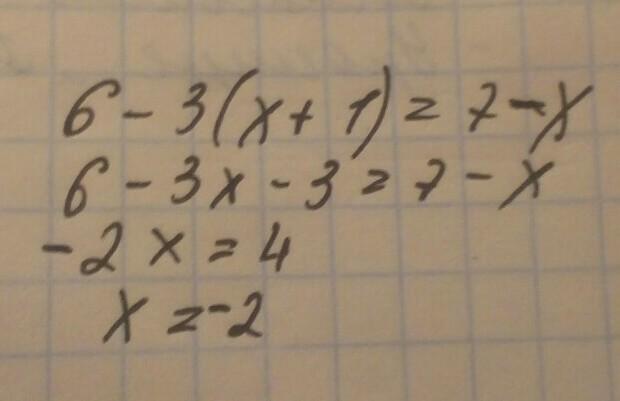 6 - 3(x + 1) = 7 - x
6 - 3x - 3 = 7 - x
-2x = 4
x = -2